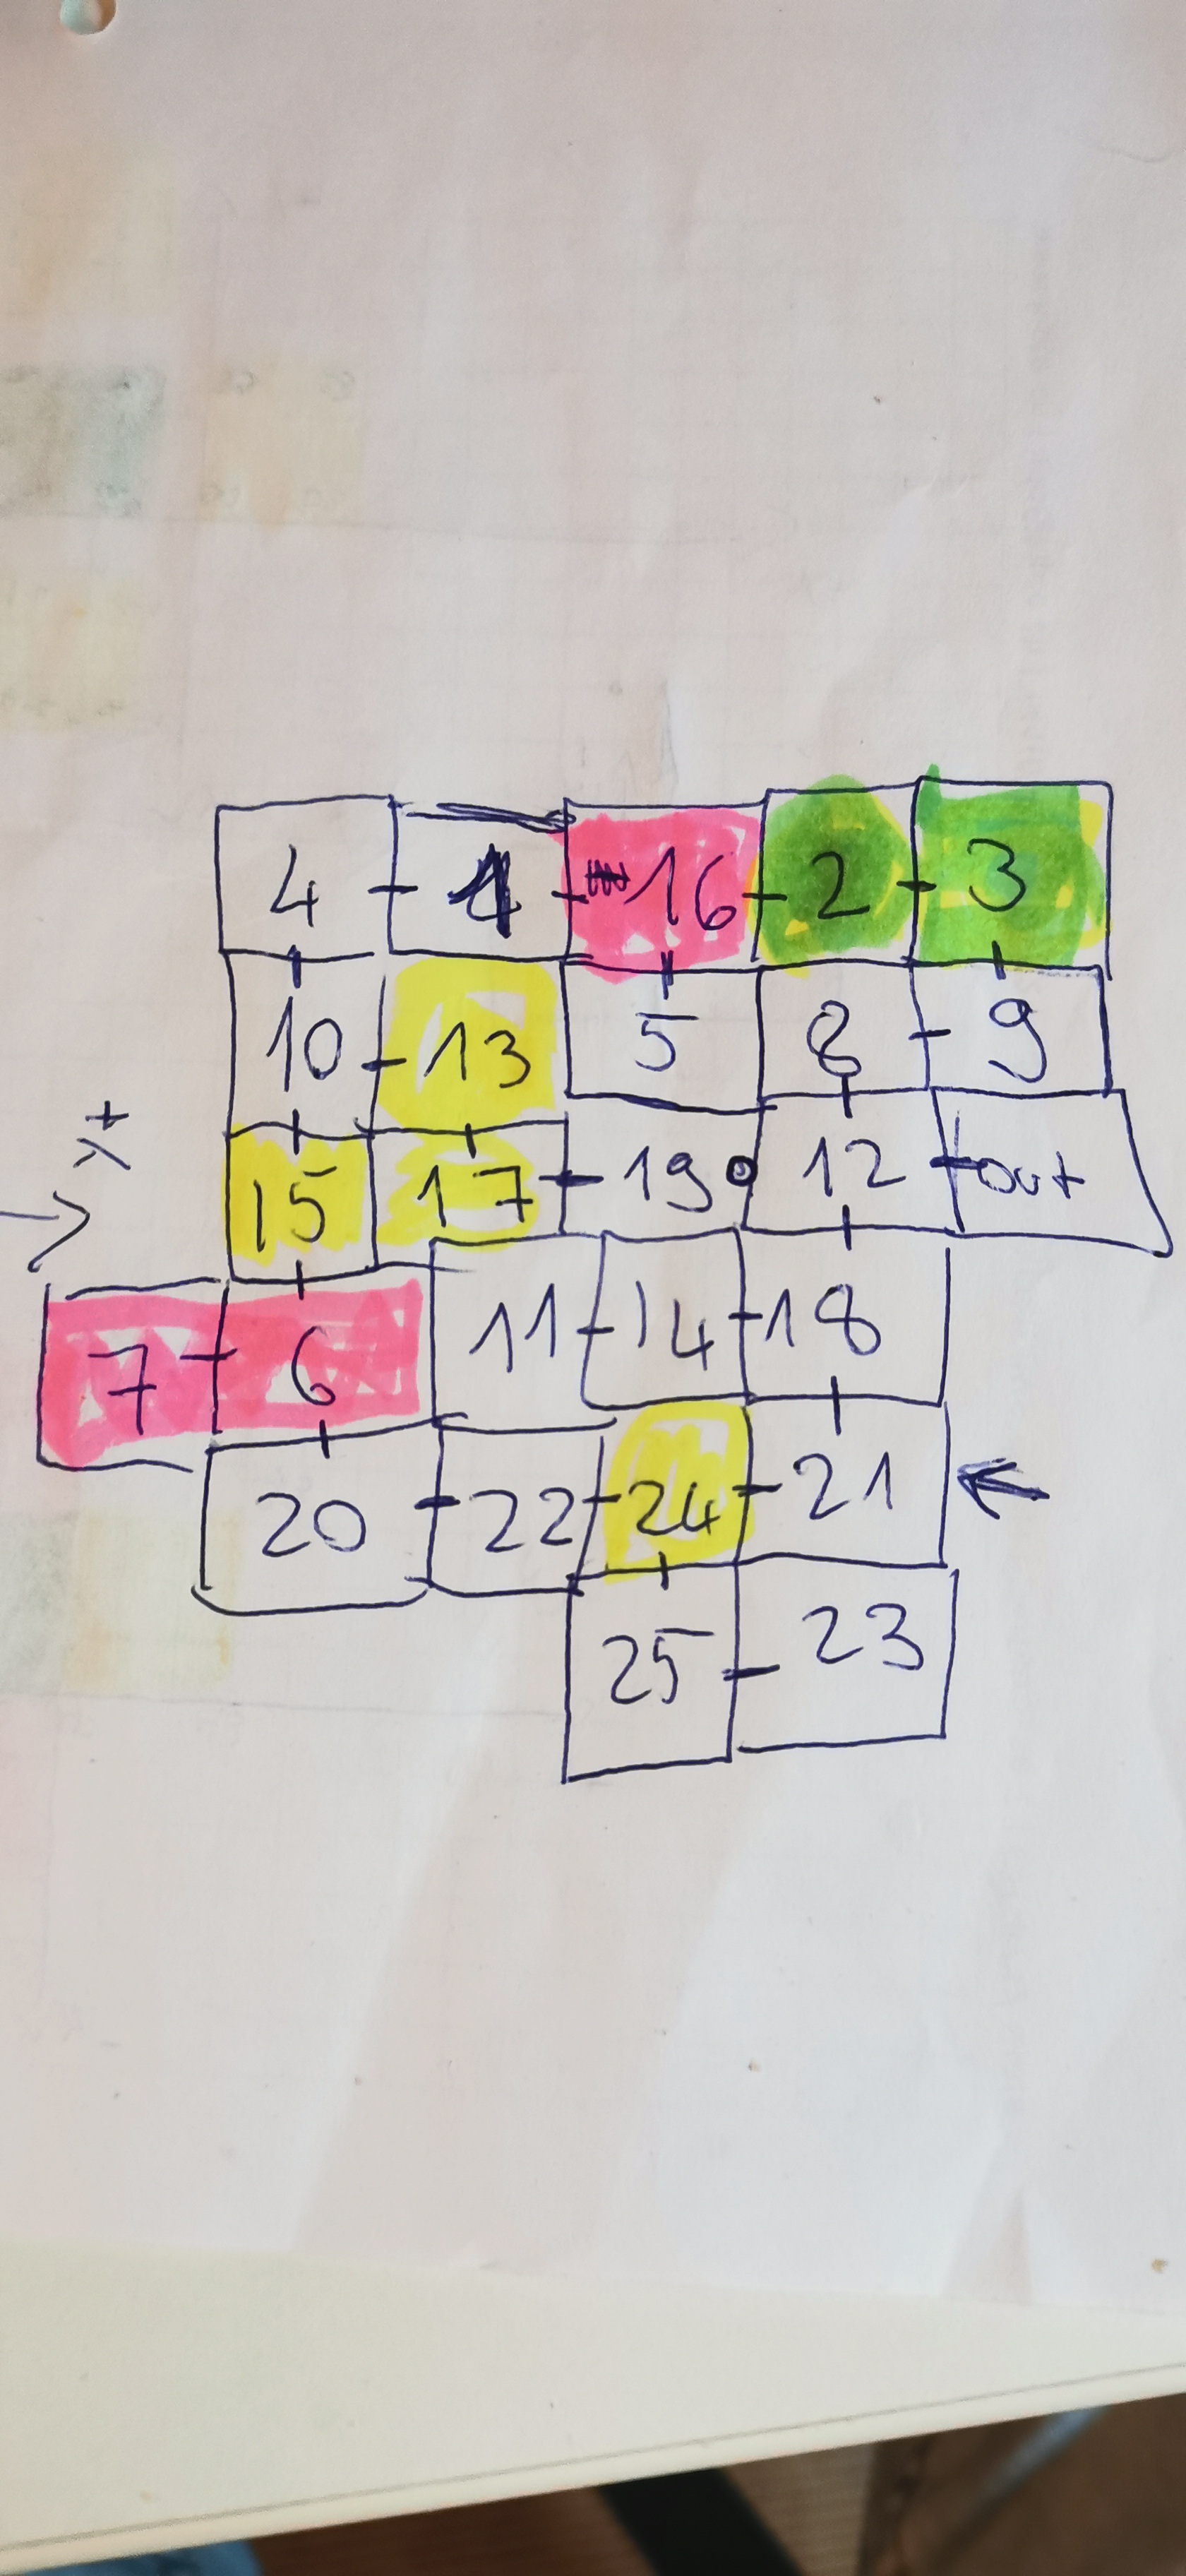 4 1 16 2 3
10 13 5 8 9
x+
15 17 19 12 out
7 6 11 14 18
20 22 24 21
25 23